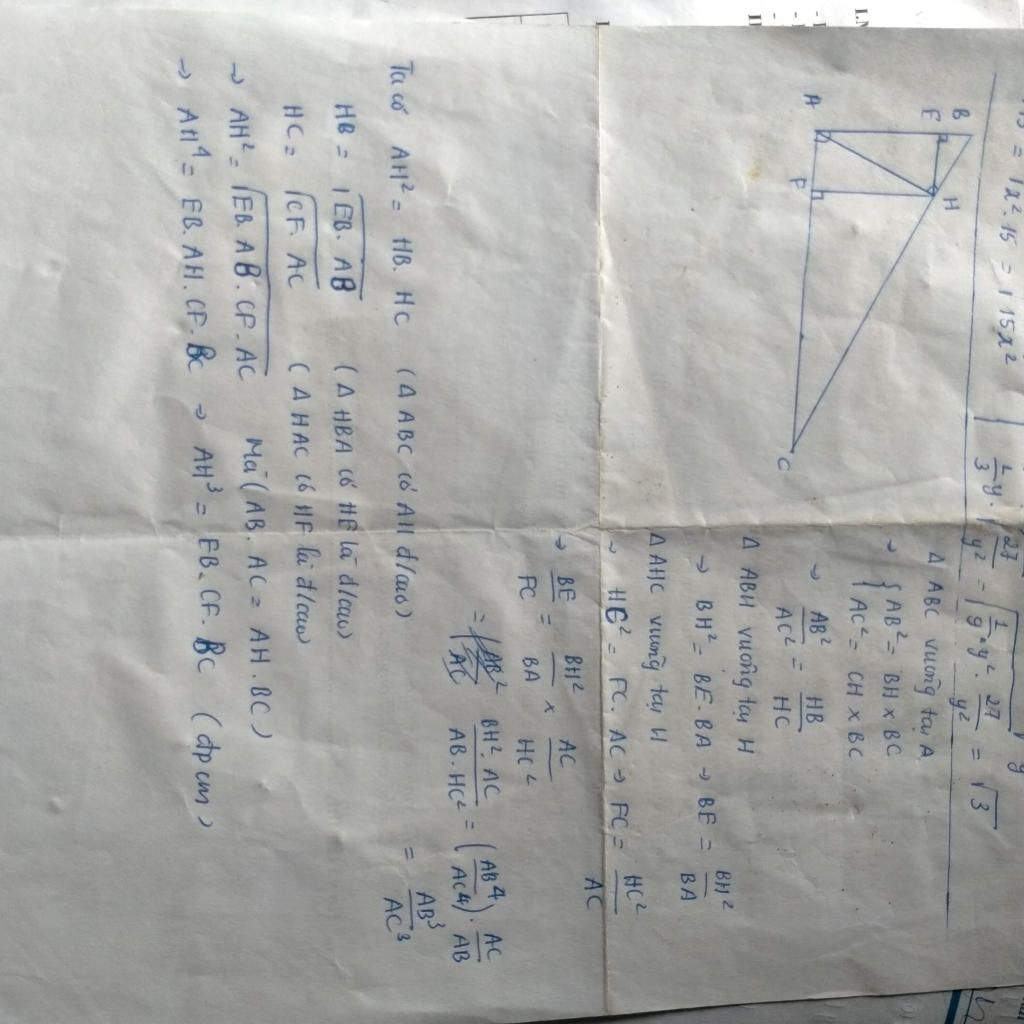 = √x². 15 = √15x²
2/3 y. √27/y² = √1/9 y². 27/y² = √3
B
E
H
A
F
C
Δ ABC vuông tại A
→ { AB² = BH x BC
AC² = CH x BC
→ AB²/AC² = HB/HC
Δ ABH vuông tại H
→ BH² = BE. BA → BE = BH²/BA
Δ AHC vuông tại H
→ HC² = FC. AC → FC = HC²/AC
→ BE/FC = BH²/BA x AC/HC²
= BH². AC/AB. HC² = (AB⁴/AC⁴). AC/AB
= AB³/AC³
Ta có AH² = HB. HC (Δ ABC có AH đ/cao)
HB = √EB. AB (Δ HBA có HE là đ/cao)
HC = √CF. AC (Δ HAC có HF là đ/cao)
→ AH² = √EB. AB. CF. AC Mà (AB. AC = AH. BC)
→ AH⁴ = EB. AH. CF. BC → AH³ = EB. CF. BC (đpcm)